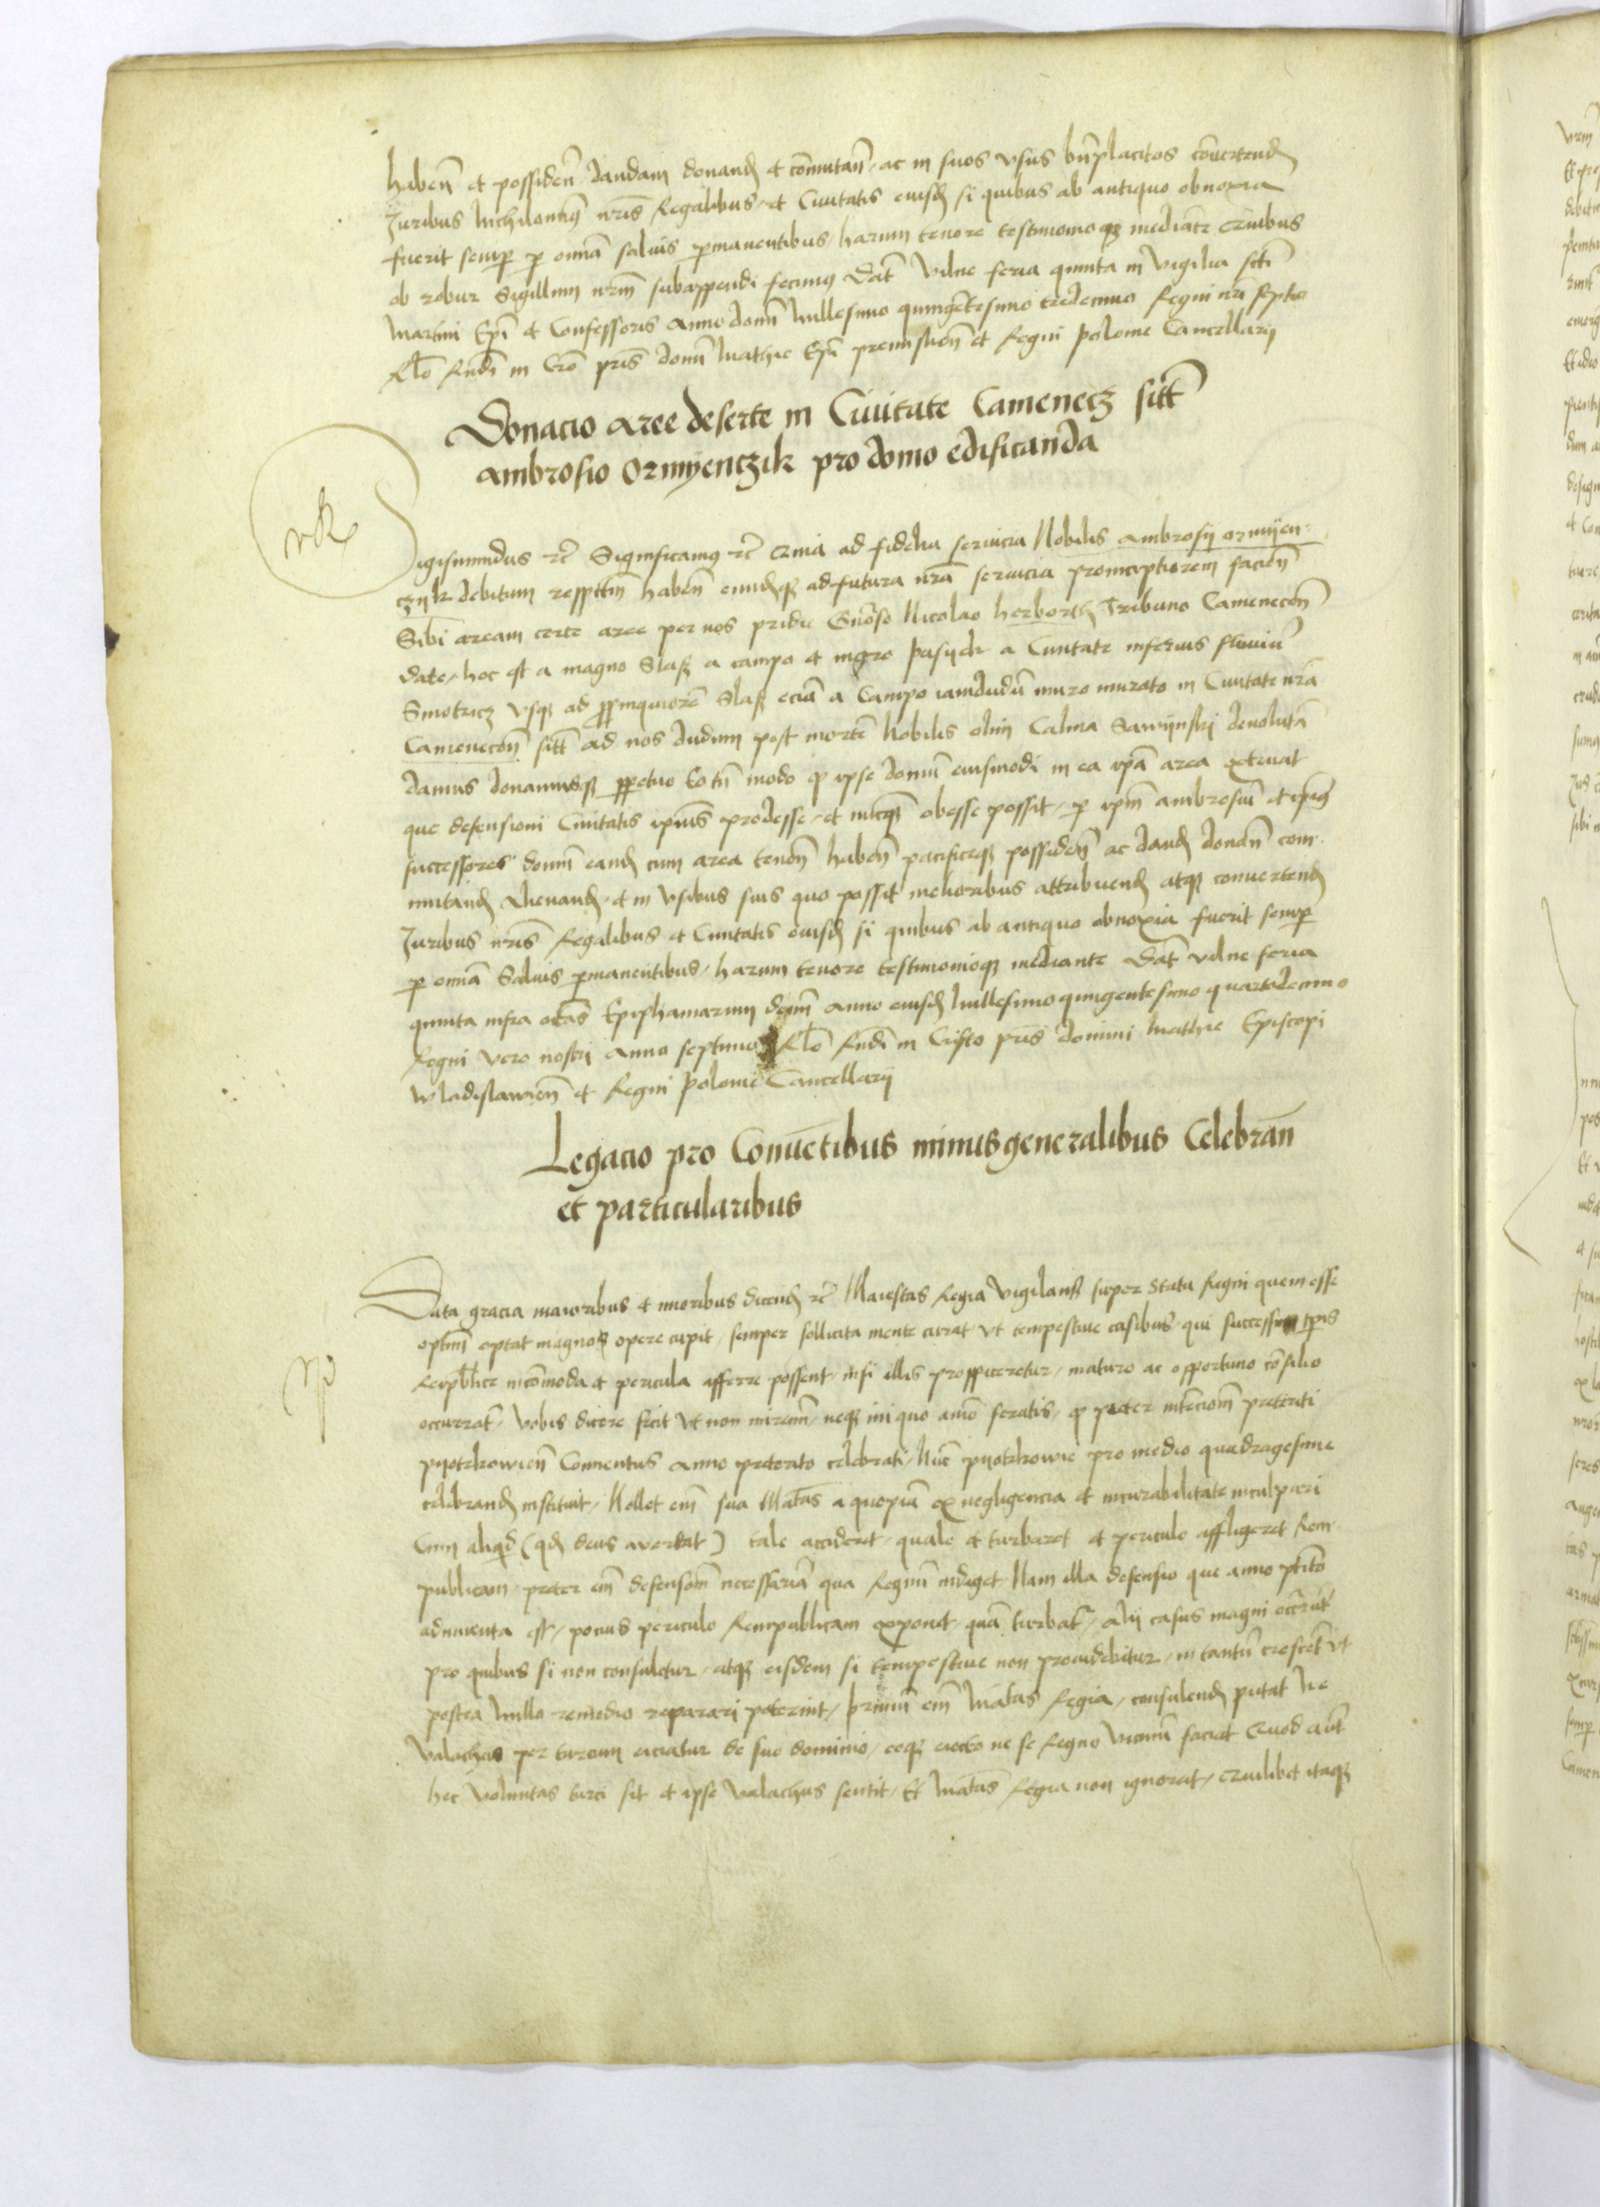 haben̄ et possiden̄ dandam donand̄ et co̅mutan̄ ac in suos vsus bn̄placitos co̅uertend̄
Juribus nichilomin9 nr̄is Regalibus et Ciuitatis eiusd̄ si quibus ab antiquo obnoxia
fuerit semp̄ p̄ omn̄ia saluis p̄manentibus harum tenore testimonioq3 mediante Cuibus
ob robur Sigillum nr̄m subappendi fecim9 Dat̄ Vilne feria quinta in Vigilia scti
Martini Ep̄i et Confessoris Anno domi̅ Millesimo quinge̅tesimo tredecimo Regni nr̄i septio
Rlo̅ Rndi̅ in Cr̄o pr̄is domi̅ Mathie Ep̄i premislien̄ et Regni polonie Cancellarij
Donacio aree deserte in Ciuitate Camenecz sitt̄
Ambrosio Ormyenczik pro domo edificanda
vk
igismundus rc̄ Significam9 rc̄ Quia ad fidelia seruicia Nobilis Ambrosij ormyen
czik debitum resptt̄m haben̄ eundq3 ad futura nr̄a seruicia promcptiorem facien̄
Sibi aream certe aree per nos pridie Gn̄oso Nicolao herborth Tribuno Camenecen̄
date, hoc est a magno Slap a campo et nigro pasijek a Ciuitate inferius fluuiu̅
Smotricz vsq3 ad p̄pinquiore̅ Slap ecia̅ a Campo iamdudu̅ muro murato in Ciuitate nr̄a
Camenecen̄ sitt̄ ad nos dudum post morte̅ Nobilis olim Calina Sawijnski deuoluta̅
damus donamusq3 p̄petuo Eo tn̄ modo q̄ ipse domu̅ eiusmodi in ea ip̄a area extruat
que defensioni Ciuitatis ipius prodesse et nusq̄ obesse possit p̄ ip̄m ambrosiu̅ et ipi9
successores domu̅ eand̄ cum area tenen̄ haben̄ pacificeq3 possiden̄ ac dand̄ donan̄ com
mutand̄ Alienand̄ et in Vsibus suis quo possit melioribus attribuend̄ atq3 conuertend̄
Juribus nr̄is Regalibus et Ciuitatis eiusd̄ si quibus ab antiquo obnoxia fuerit semp̄
p̄ omn̄ia Saluis p̄manentibus, harum tenore testimonioq3 mediante Dat̄ vilne feria
quinta infra octa̅s Epiphaniarum domi̅ Anno eiusd̄ Millesimo quingentesimo quartodecimo
Regni vero nostri anno septimo Rlo̅ Rndi̅ in Cristo pr̄is domini Mathie Episcopi
Wladislawien̄ et Regni polonie Cancellarij
Legacio pro Conue̅tibus minus generalibus Celebran̄
et particularibus
Data gracia maioribus et minoribus dicend̄ rc̄ Maiestas Regia Vigilans super Statu Regni quem esse
optim̄ optat magnoq3 opere cupit, semper sollicita mente curat vt tempestiue casibus qui successu tp̄is
Reipb̄lice inco̅moda et pericula afferre possent, nisi illis prospiceretur, maturo ac opportuno co̅silio
occurrat, Vobis dicere fecit Vt non mirem̄, neq3 iniquo aīo feratis, q̄ preter inte̅ciom̄ preteriti
pijotrkowien̄ Conuentus anno preterito celebrati, Nu̅c pijotrkowie pro medio quadragesime
celebrand̄ instituit, Nollet em̄ sua Mat̄as a quopia̅ ex negligencia et incurabilitate inculpari
Cum aliqd̄ (qd̄ deus avertat) tale accideret, quale et turbaret et periculo affligeret Rem
publicam, preter em̄ defensiom̄ necessaria̅ qua Regnu̅ indiget Nam illa defensio que anno pt̄ito
adinuenta est, pocius periculo Rempublicam exponit qua̅ turbat̄, Alij casus magni occurru̅t
pro quibus si non consuletur, atq3 eisdem si tempestiue non prouidebitur, in tantu̅ crescent vt
postea Nullo remedio reparari poterint, primu̅ em̄ Mat̄as Regia, consulend̄ putat Ne
Valachus per turcum eiciatur de suo dominio, eoq3 eiecto ne se Regno vicinu̅ faciat Quod aut̄
hec Voluntas turci sit et ipse Valachus sentit, Et Mat̄as Regia non ignorat, Quilibet itaq3